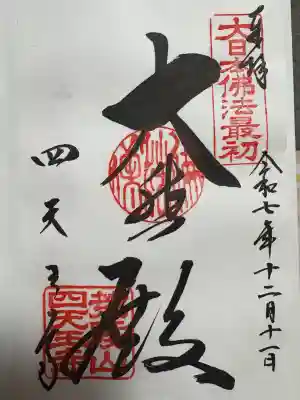 奉拝
大日本佛法最初
令和七年十二月十一日
大悲殿
四天王寺
荒陵山
四天王寺